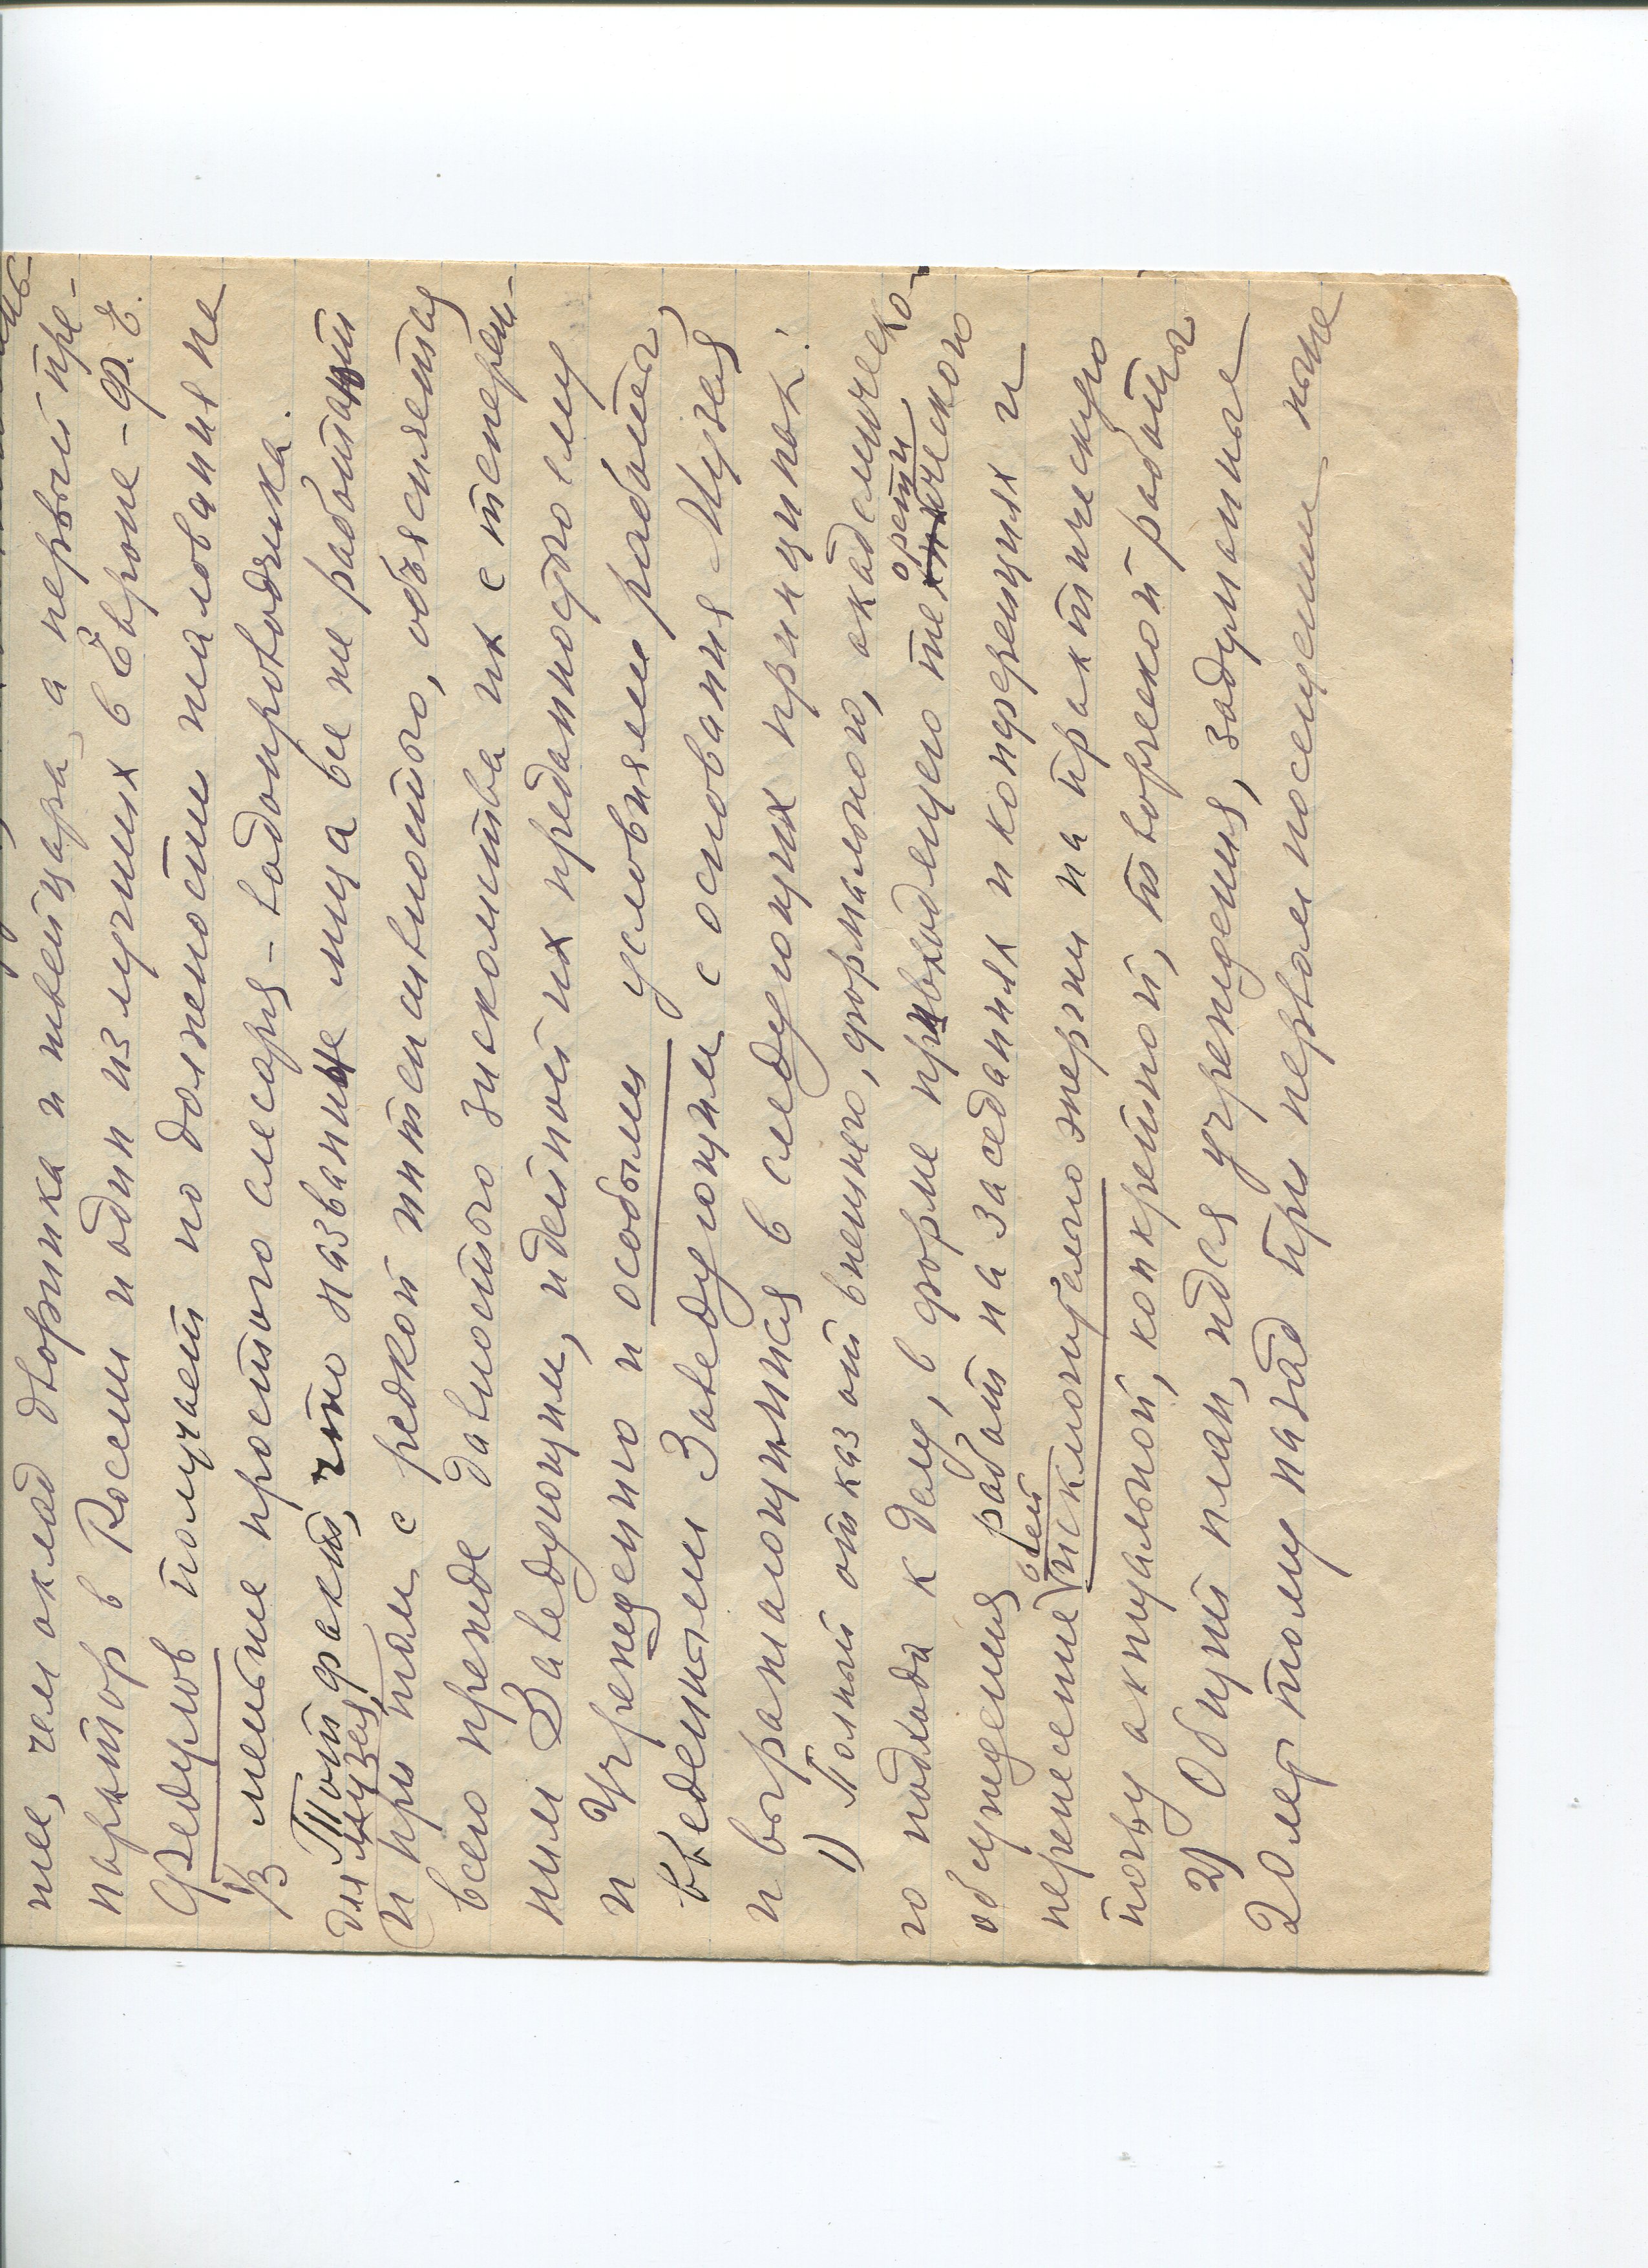 ше, чем оклад дворника и швейцара, а первый пре-
паратор в России и один из лучших в Европе – Ф. Е.
Федулов получает по должности жалования не
меньше простого слесаря-водопроводчика.
В Тот факт, что названные лица все же работают
для музея,
и при том с редкой интенсивностью, объясняется
всего прежде давностью знакомства их с тепереш-
ним Заведующим, идейной их преданностью ему
и Учреждению и особыми условиями работы,
введенными Заведующим с основания Музея
и выраживающимися в следующих принципах:
1) Полный отказ от внешнего, формального, академическо-
го подхода к делу, в форме привходящего теоретического
обсуждения работ на заседаниях и конференциях и
перенесение всей исключительно энергии на практическую
почву актуальной, конкретной, творческой работы
2) Общий план, идея учреждения, задуманные
20 лет тому назад при первом посещении ныне